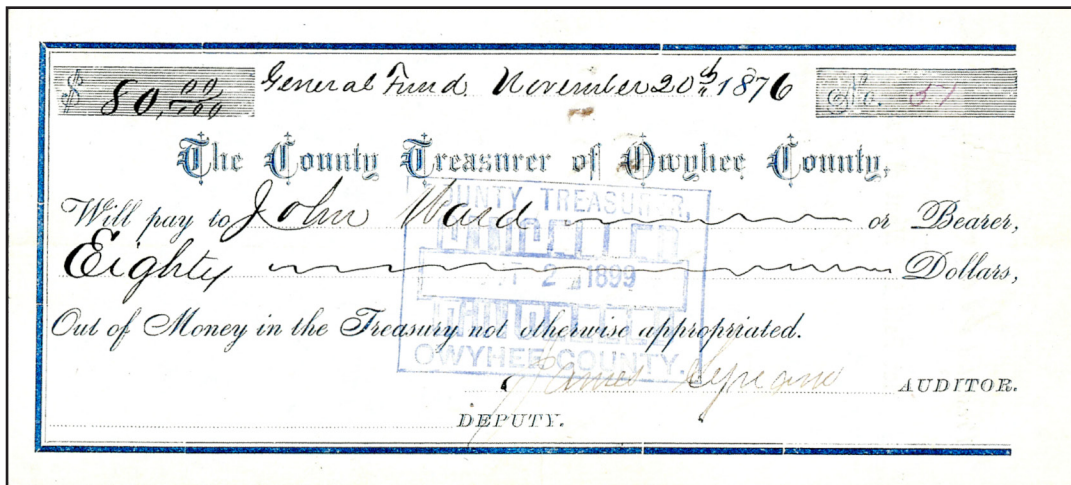 $ 80,00/100 General Fund November 20th 1876 No. 37
The County Treasurer of Owyhee County,
Will pay to John Ward or Bearer,
Eighty Dollars,
Out of Money in the Treasury not otherwise appropriated.
James AUDITOR.
DEPUTY.
COUNTY TREASURER,
CANCELLED
OCT 2 1899
CANCELLED
OWYHEE COUNTY.